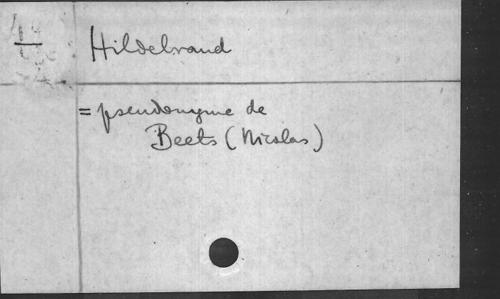 Hildebrand
= pseudonyme de
Beets (Nicolas)